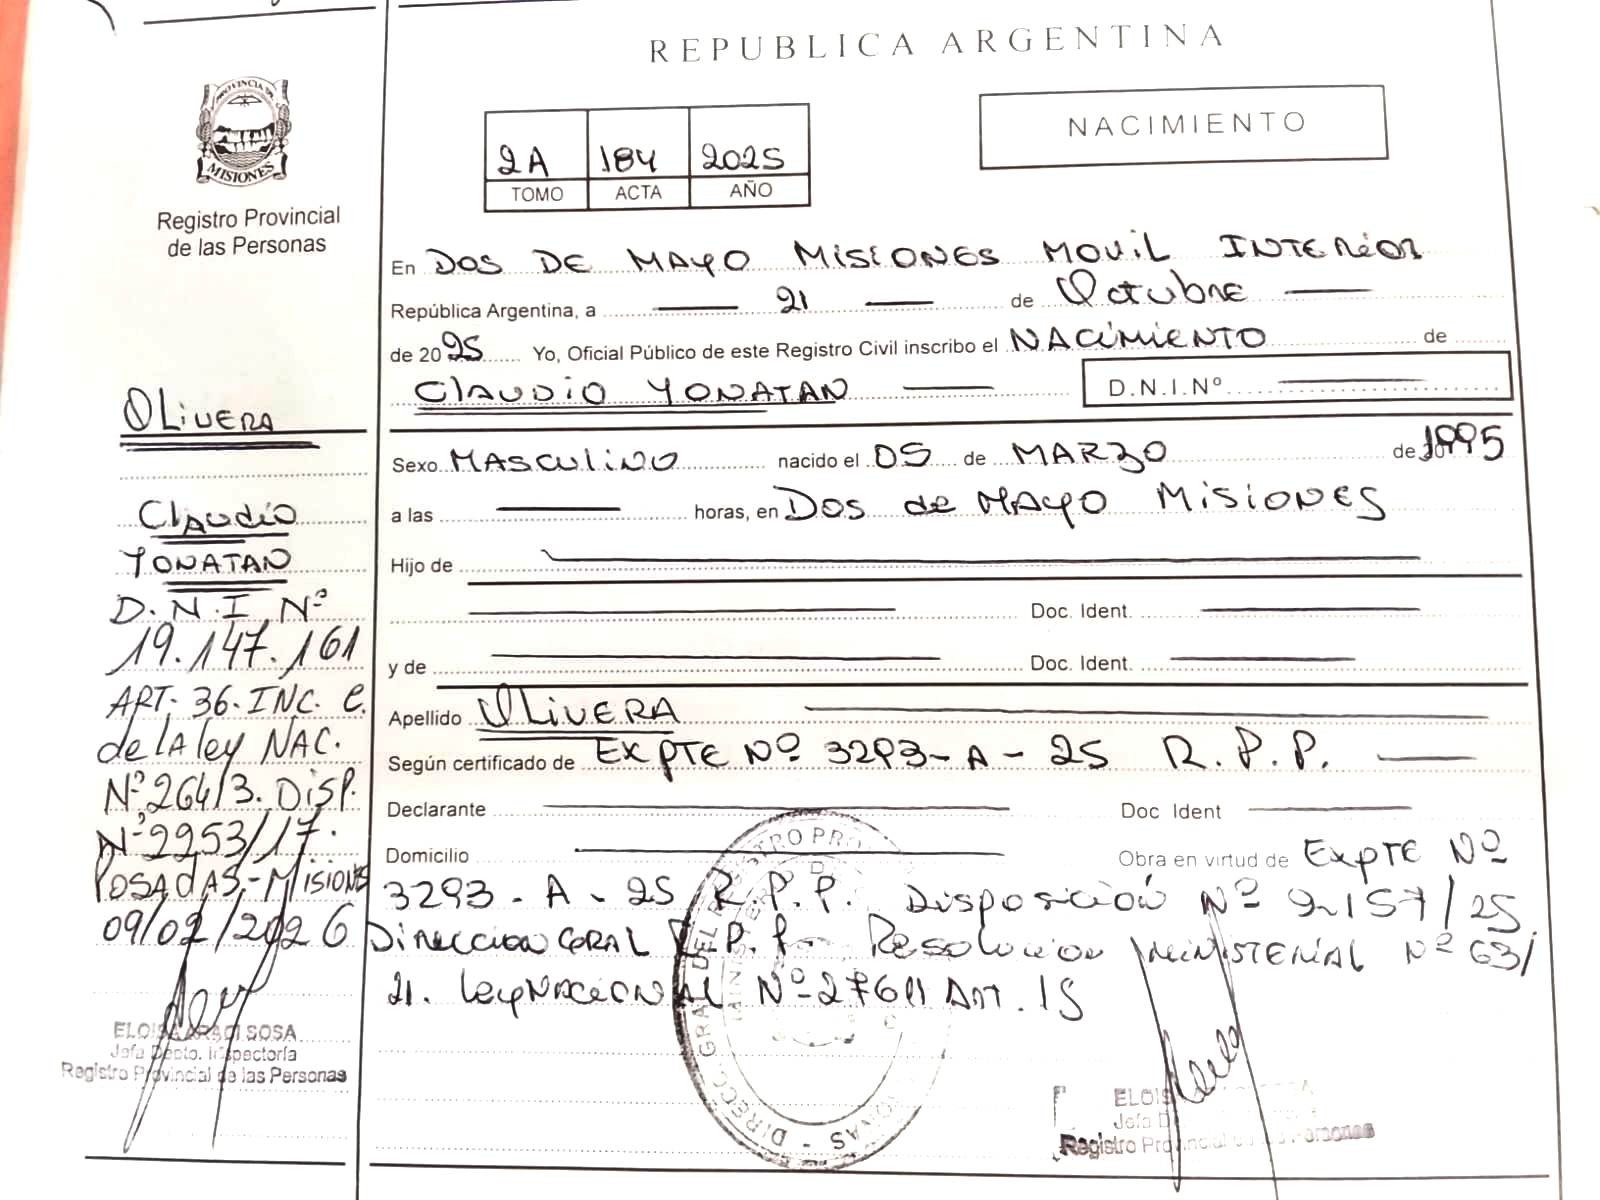 REPUBLICA ARGENTINA
NACIMIENTO
2A 184 2025
TOMO ACTA AÑO
PROVINCIA DE
MISIONES
Registro Provincial
de las Personas
En DOS DE MAYO MISIONES MOVIL INTERIOR
República Argentina, a 21 de Octubre
de 2025 Yo, Oficial Público de este Registro Civil inscribo el NACIMIENTO de
CLAUDIO YONATAN D.N.I.Nº
Sexo MASCULINO nacido el 05 de MARZO de 1995
a las horas, en Dos de MAYO MISIONES
Hijo de
Doc. Ident.
y de Doc. Ident.
Apellido OLIVERA
Según certificado de EXPTE Nº 3293-A-25 R.P.P.
Declarante Doc Ident
Domicilio Obra en virtud de EXPTE Nº
3293-A-25 R.P.P. Disposición Nº 2157/25
DIRECCION GRAL R.P.P. RESOLUCION MINISTERIAL Nº 63/
21. Ley NACIONAL Nº 27611 ART. 15
OLIVERA
CLAUDIO
YONATAN
D.N.I Nº
19.147.161
ART. 36. INC. C.
de lA ley NAC.
Nº 26413. DISP.
Nº 2253/17.
POSADAS-MISIONES
09/02/2026
ELOISA ARACI SOSA
Jefa Dpto. Inspectoría
Registro Provincial de las Personas
ELOIS
Jefa D
Registro Provincial de las Personas
DIRECC. GRAL. DEL REGISTRO PRO
MINISTERIO D
ONAS -